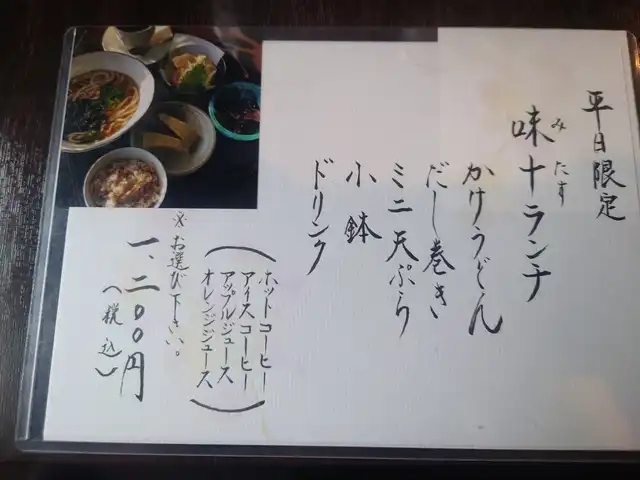 平日限定
味十ランチ
みたす
かけうどん
だし巻き
ミニ天ぷら
小鉢
ドリンク
(ホットコーヒー
アイスコーヒー
アップルジュース
オレンジジュース)
※お選び下さい。
一、二〇〇円
(税込)